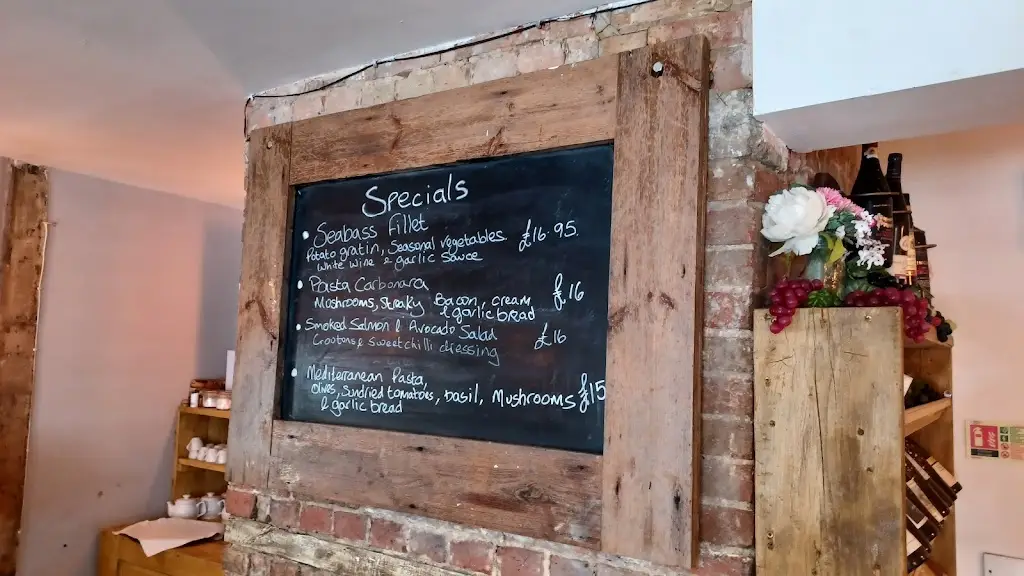 Specials
Seabass fillet
Potato gratin, Seasonal vegetables £16.95
white wine & garlic sauce
Pasta Carbonara
Mushrooms, streaky Bacon, cream £16
& garlic bread
Smoked Salmon & Avocado Salad £16
Croutons & sweet chilli dressing
Mediterranean Pasta,
olives, Sundried tomatoes, basil, Mushrooms £15
& garlic bread